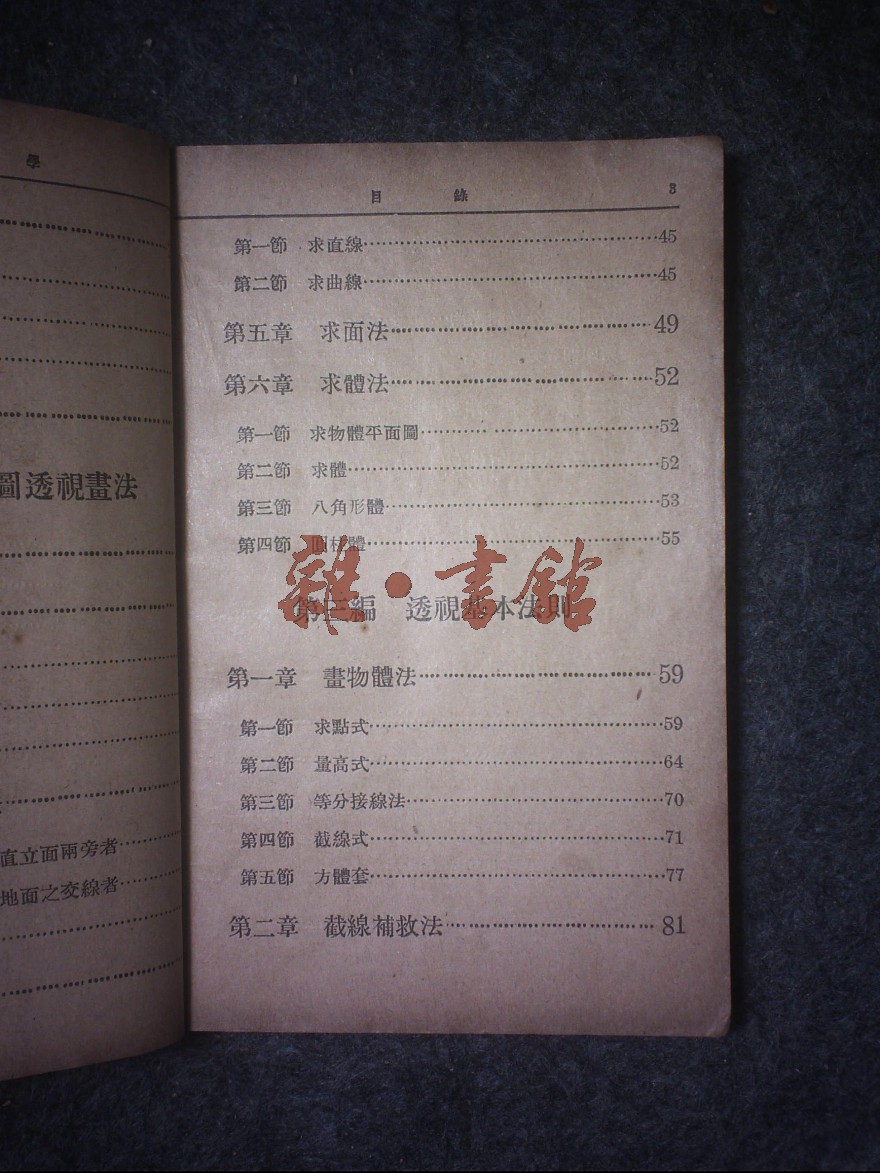 學
圖透視畫法
直立面兩旁者
地面之交線者
目錄 3
第一節 求直線 45
第二節 求曲線 45
第五章 求面法 49
第六章 求體法 52
第一節 求物體平面圖 52
第二節 求體 52
第三節 八角形體 53
第四節 圓柱體 55
雜·書館
第三編 透視基本法則
第一章 畫物體法 59
第一節 求點式 59
第二節 量高式 64
第三節 等分接線法 70
第四節 截線式 71
第五節 方體套 77
第二章 截線補救法 81